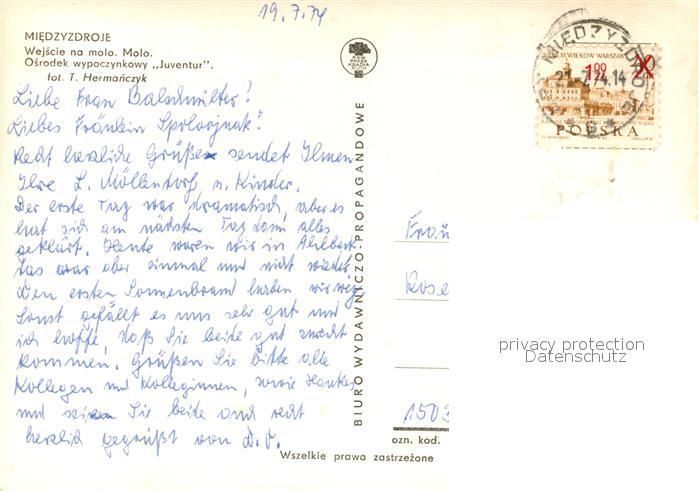 19.7.74
MIĘDZYZDROJE
Wejście na molo. Molo.
Ośrodek wypoczynkowy „Juventur".
fot. T. Hermańczyk
Liebe Frau
Liebes Fräulein
Recht herzliche Grüße sendet Ihnen
Ihre L. Möllendorf u. Kinder.
Der erste Tag war dramatisch, aber es
hat sich am nächsten Tag dann alles
geklärt. Heute waren wir in Ahlbeck
das war aber einmal und nicht wieder
Den ersten Sonnenbrand haben wir weg,
Sonst gefällt es uns sehr gut und
ich hoffe, daß Sie beide gut zurecht
kommen. Grüßen Sie bitte alle
Kollegen und Kolleginnen, sowie
und seien Sie beide und recht
herzlich gegrüßt von
BIURO WYDAWNICZO-PROPAGANDOWE
MIĘDZYZDROJE
21.7.74.14
1 00
POLSKA
Frau
Rose
1503
ozn. kod.
Wszelkie prawa zastrzeżone
privacy protection
Datenschutz